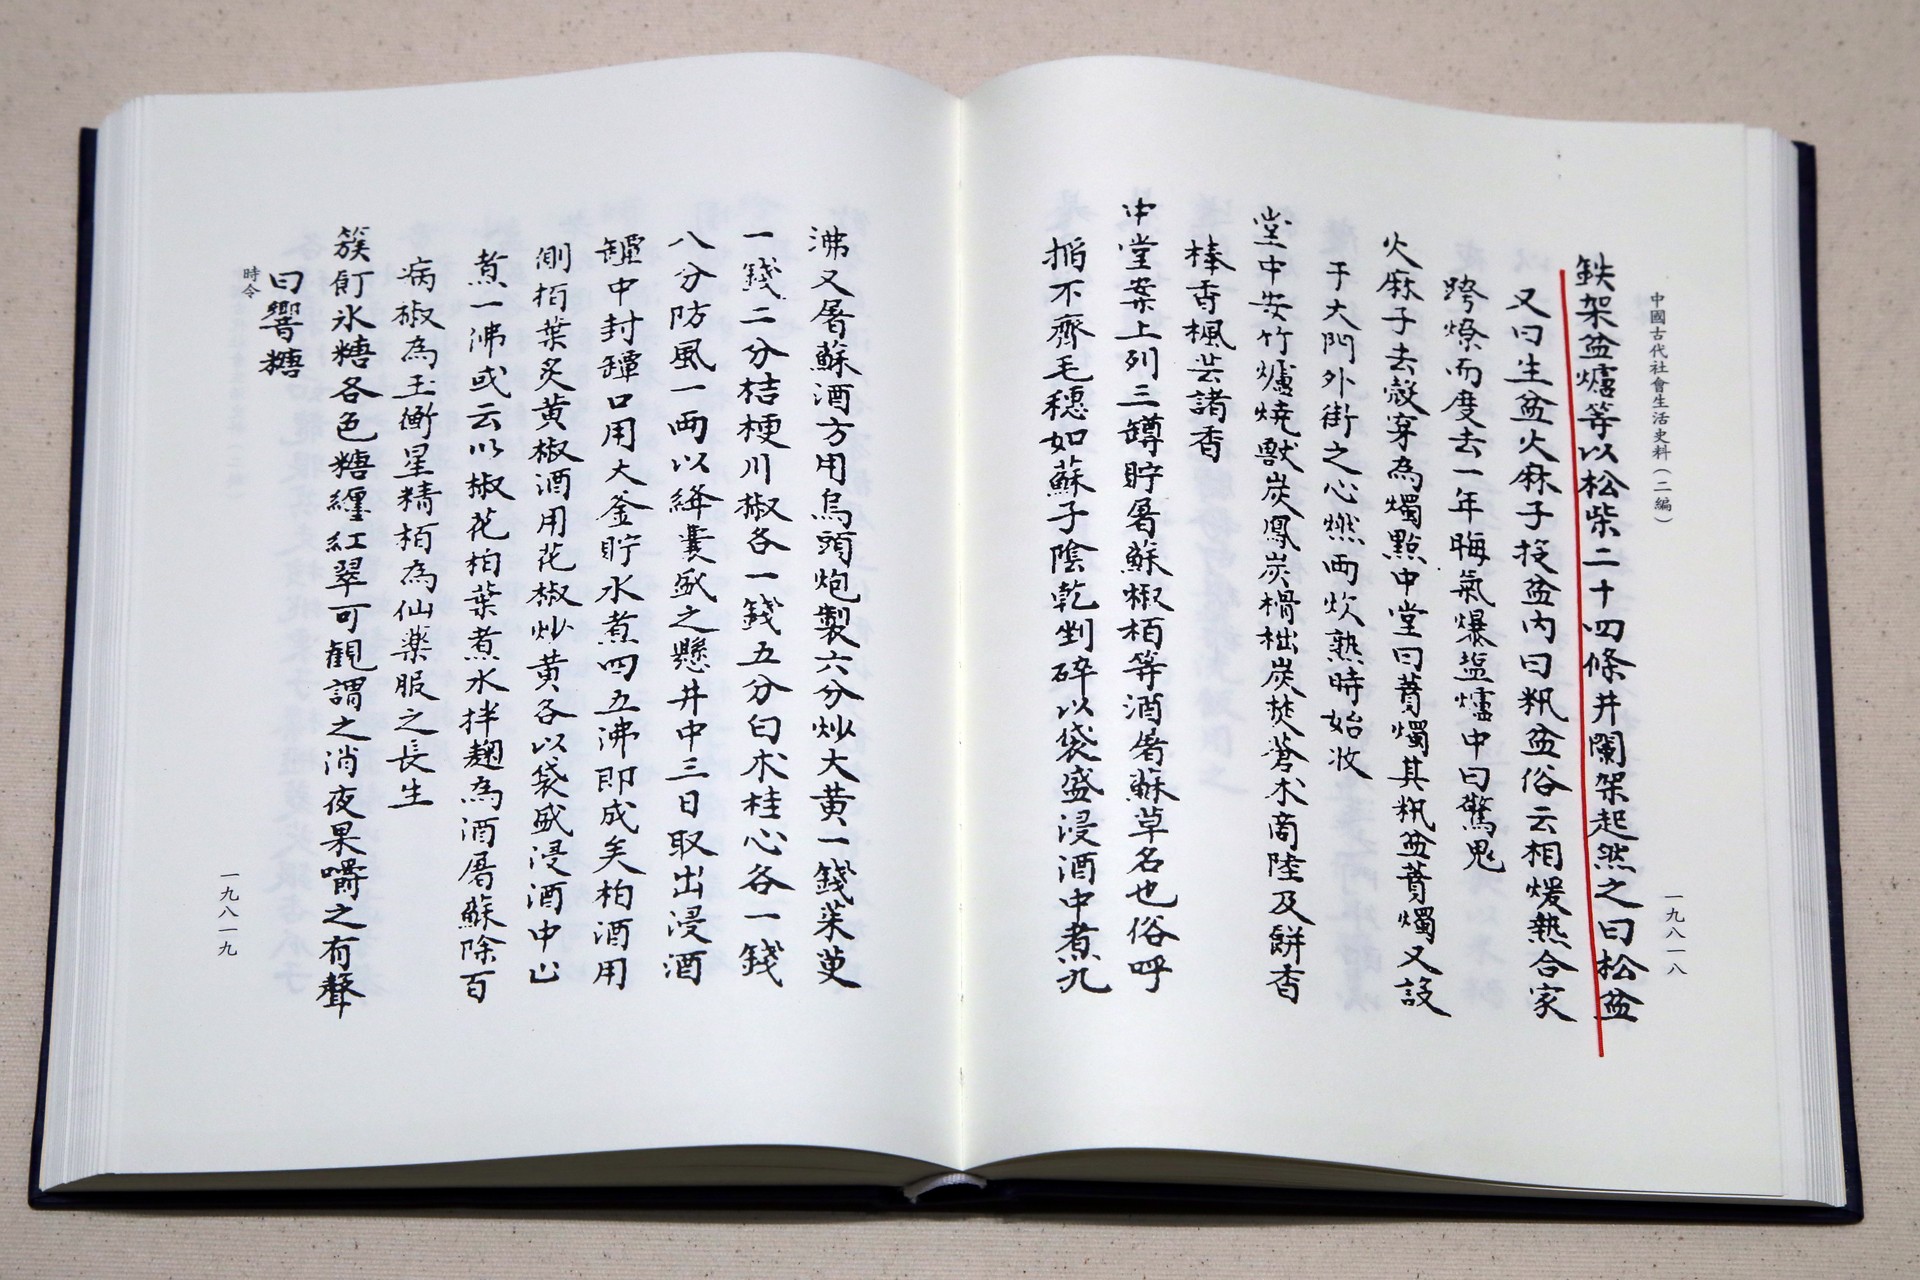 中國古代社會生活史料（二編）
一九八一八
鉄架盆爐等以松柴二十四條井闌架起然之曰松盆
又曰生盆火麻子投盆內曰籸盆俗云相煖熱合家
跨燎而度去一年晦氣爆盐爐中曰驚鬼
火麻子去殼穿為燭點中堂曰蕡燭其籸盆蕡燭又設
于大門外街之心燃而炊熟時始收
堂中安竹爐燒獸炭鳳炭榾柮炭焚蒼术商陸及餅香
棒香楓芸諸香
中堂案上列三罇貯屠蘇椒栢等酒屠蘇草名也俗呼
稻不齊毛穗如蘇子陰乾剉碎以袋盛浸酒中煮九
沸又屠蘇酒方用烏頭炮製六分炒大黃一錢茱萸
一錢二分桔梗川椒各一錢五分白术桂心各一錢
八分防風一兩以絳囊盛之懸井中三日取出浸酒
罈中封罈口用大釜貯水煮四五沸即成矣柏酒用
側栢葉炙黃椒酒用花椒炒黃各以袋盛浸酒中亾
煮一沸或云以椒花柏葉煮水拌麴為酒屠蘇除百
病椒為玉衡星精栢為仙藥服之長生
簇飣氷糖各色糖纏紅翠可觀謂之消夜果嚼之有聲
曰響糖
時令
一九八一九